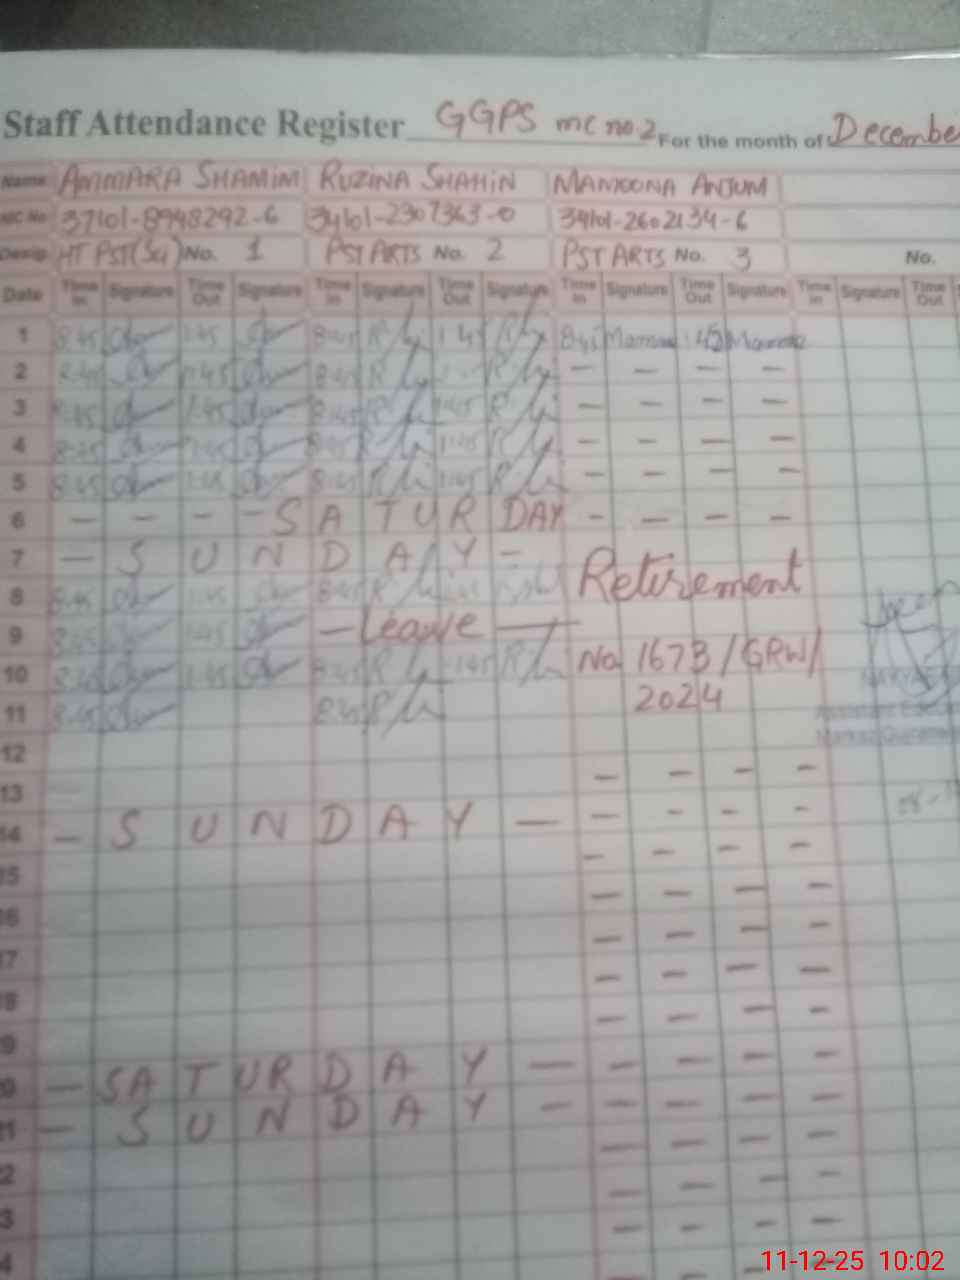 Staff Attendance Register GGPS mc no. 2 For the month of December
Name AMMARA SHAMIM RUZINA SHAHIN MAMOONA ANJUM
NIC No 37101-8948292-6 34101-2307363-0 34101-2602134-6
Desig HT PST(Sci) No. 1 PST ARTS No. 2 PST ARTS No. 3 No.
Date Time In Signature Time Out Signature Time In Signature Time Out Signature Time In Signature Time Out Signature Time In Signature Time Out
1 8:45 1:45 8:45 1:45 8:45 1:45
2 8:45 1:45 8:45 — — — —
3 8:45 1:45 8:45 1:45 — — — —
4 8:45 1:45 8:45 1:45 — — — —
5 8:45 1:45 8:45 1:45 — — — —
6 - - - - SATURDAY - — — -
7 — SUNDAY -
Retirement
8 8:45 1:45 8:45 1:45
9 8:45 1:45 — Leave —
10 8:45 1:45 8:45 1:45 No 1673/GRW/
2024
11 8:45 8:45
12
13 — — — —
14 — SUNDAY — — - - -
15 — — — —
16 — — — —
17 — — — —
18 — — — —
19 — — — —
20 — SATURDAY — — — — —
21 — SUNDAY — — — — —
22 — — — —
23 — — — —
24 — — — —
11-12-25 10:02